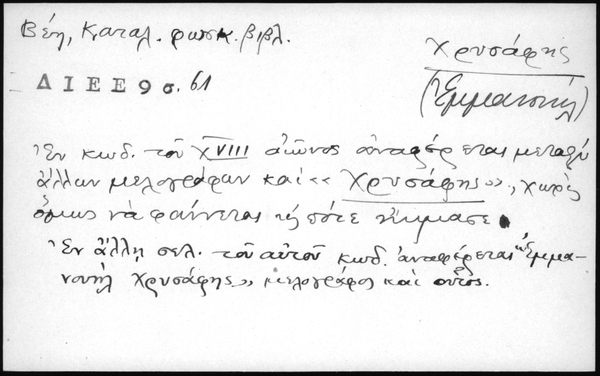 Βέη, Καταλ. φωσκ. βιβλ.
ΔΙΕΕ 9 σ. 61
Χρυσάφης
(Ἐμμανουήλ)
Ἐν κωδ. τοῦ XVIII αἰῶνος ἀναφέρεται μεταξὺ
ἄλλων μελογράφων καὶ «Χρυσάφης», χωρὶς
ὅμως νὰ φαίνεται πότε ἤκμασε.
Ἐν ἄλλῃ σελ. τοῦ αὐτοῦ κωδ. ἀναφέρεται «Ἐμμα-
νουὴλ Χρυσάφης» μελογράφος καὶ αὐτός.